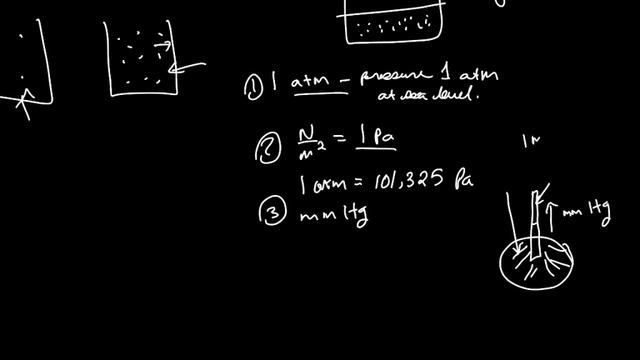 ① 1 atm - pressure 1 atm
at sea level.
② N/m² = 1 Pa
1 atm = 101,325 Pa
③ mm Hg
mm Hg